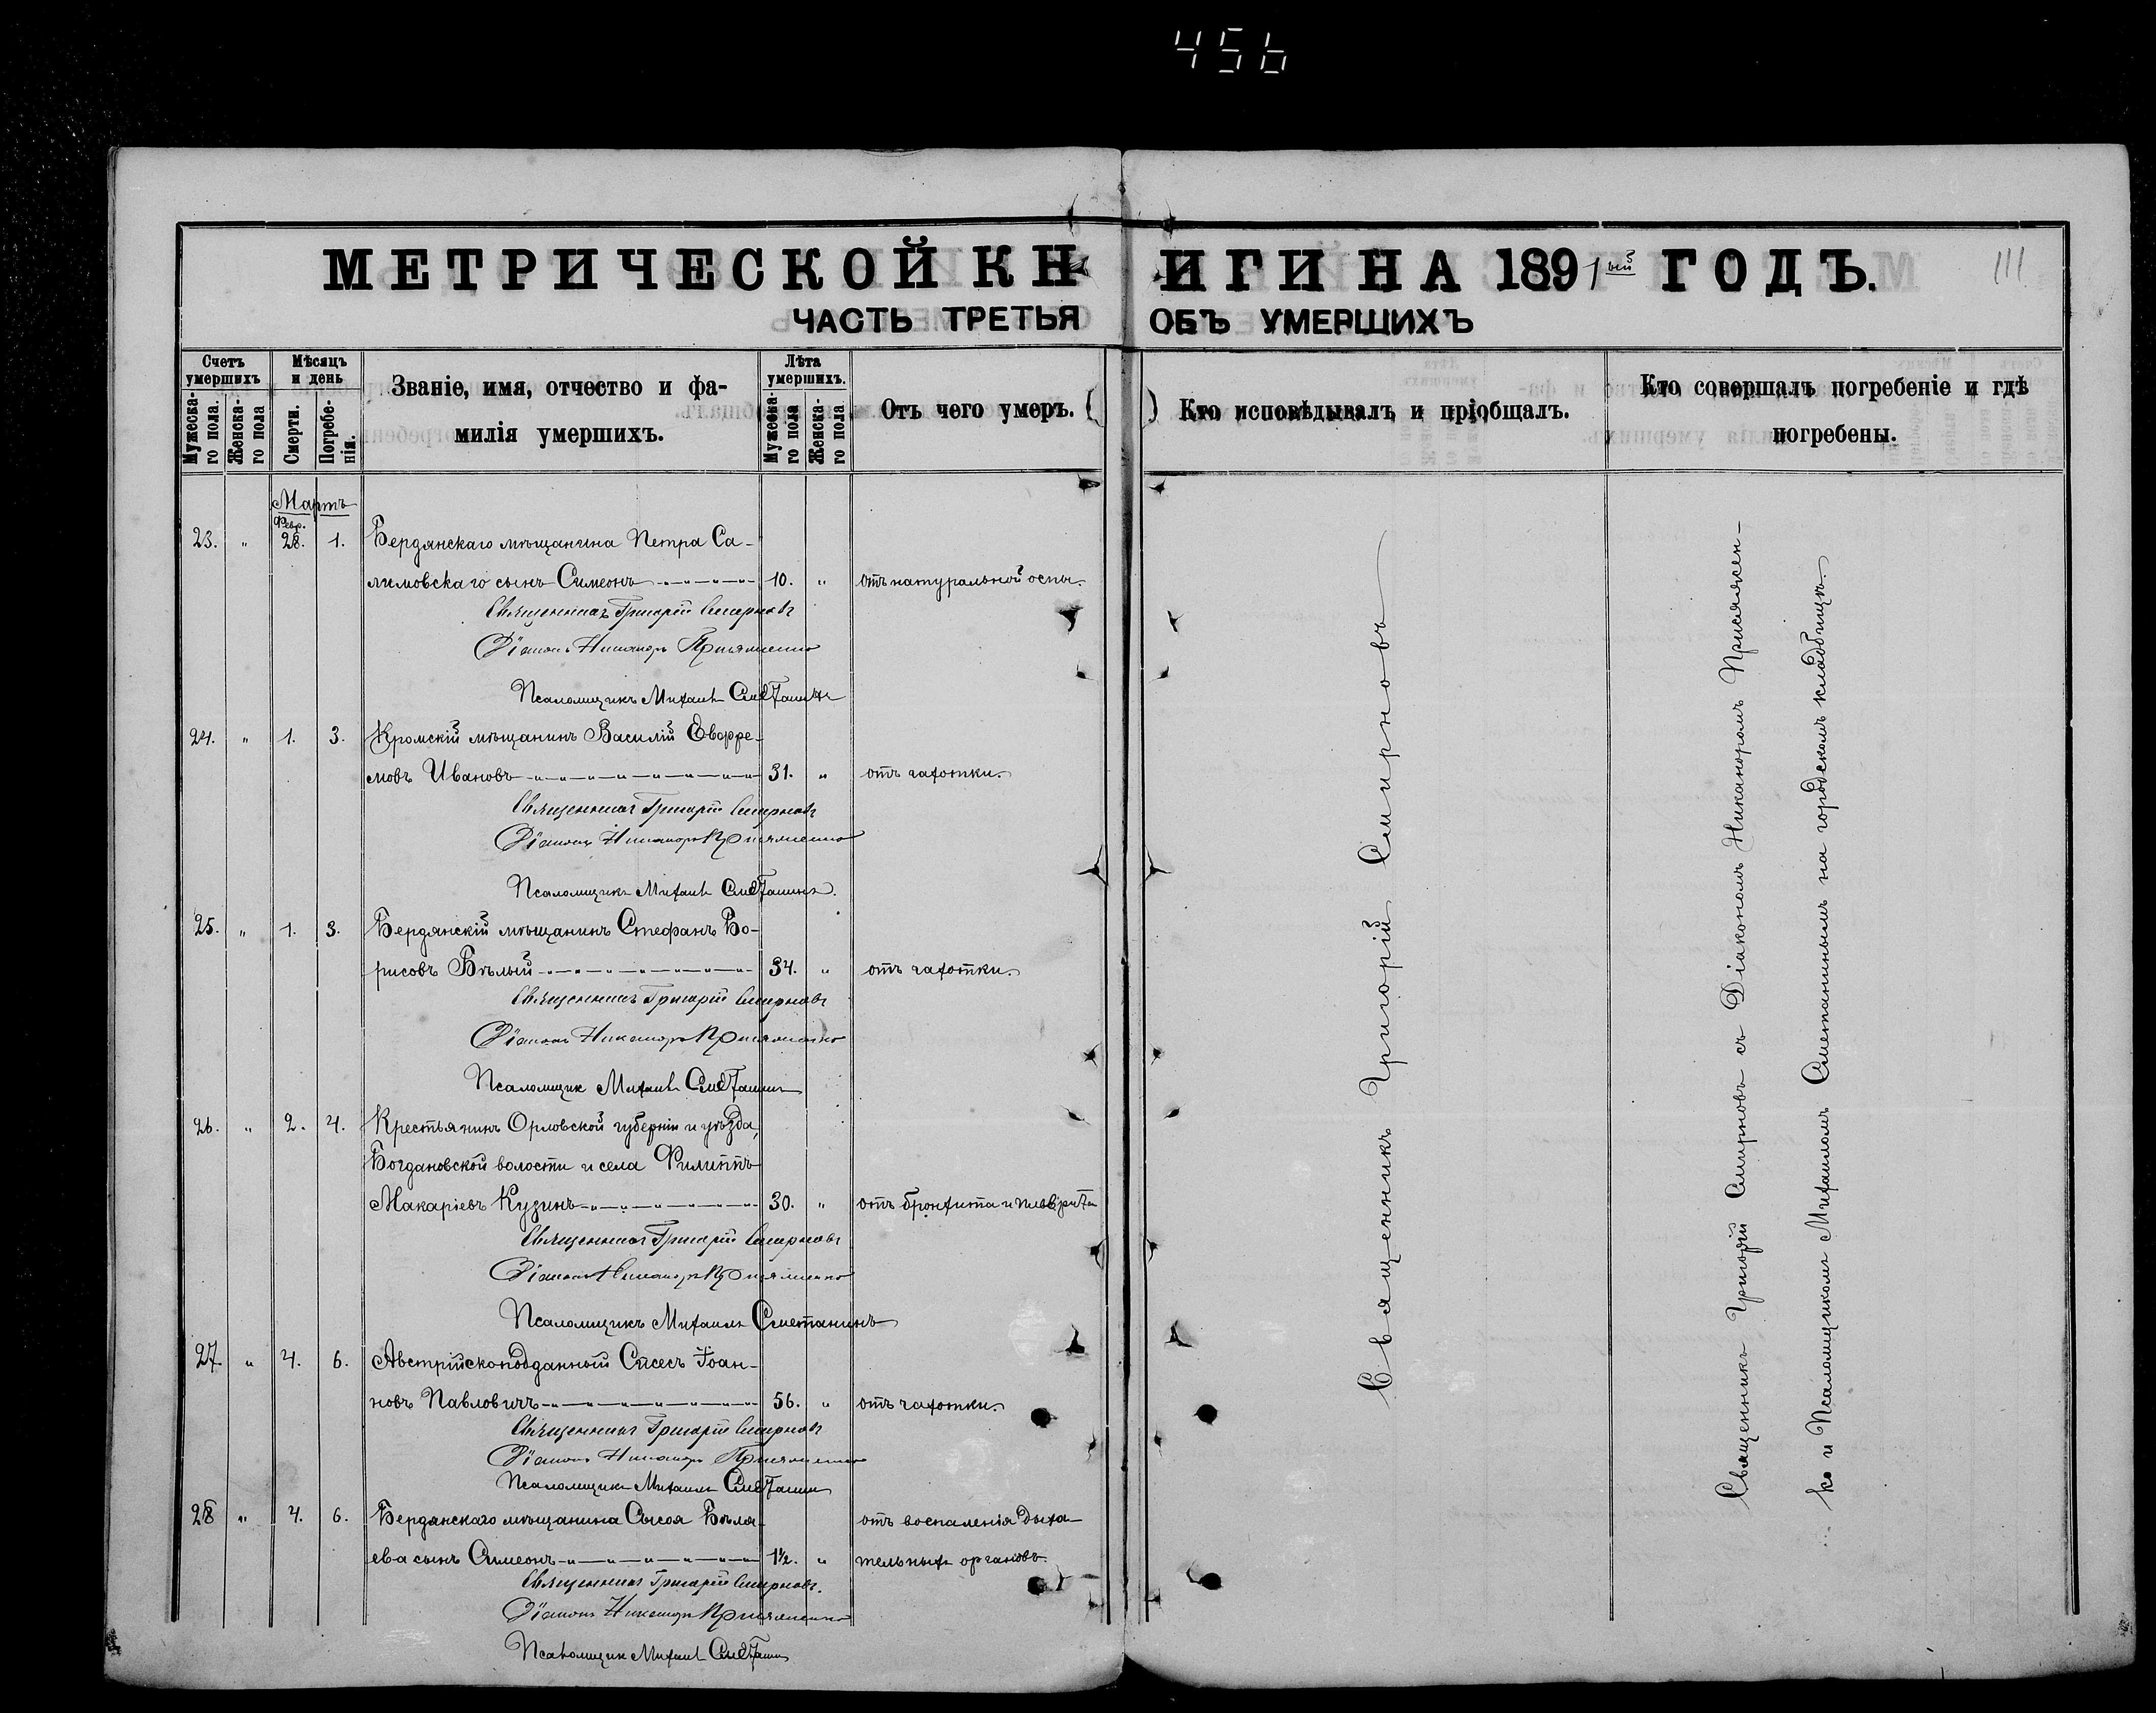 456
МЕТРИЧЕСКОЙ КНИГИ НА 1891ый ГОДЪ.
111
ЧАСТЬ ТРЕТЬЯ ОБЪ УМЕРШИХЪ
Счетъ умершихъ
Мужеска-го пола.
Женска-го пола
Мѣсяцъ и день
Смерти.
Погребе-нія.
Званіе, имя, отчество и фа-
милія умершихъ.
Лѣта умершихъ.
Мужеска-го пола
Женска-го пола.
Отъ чего умеръ.
Кто исповѣдывалъ и пріобщалъ.
Кто совершалъ погребеніе и гдѣ
погребены.
Мартъ
Февр.
23. " 28. 1. Бердянскаго мѣщанина Петра Са-
лимовскаго сынъ Симеонъ 10. " отъ натуральной оспы.
Священникъ Григорій Смирновъ
Діаконъ Никаноръ Присяженко
Псаломщикъ Михаилъ Сметанинъ
24. " 1. 3. Кромскій мѣщанинъ Василій Евфре-
мовъ Ивановъ 31. " отъ чахотки.
Священникъ Григорій Смирновъ
Діаконъ Никаноръ Присяженко
Псаломщикъ Михаилъ Сметанинъ.
25. " 1. 3. Бердянскій мѣщанинъ Стефанъ Бо-
рисовъ Бѣлый 34. " отъ чахотки.
Священникъ Григорій Смирновъ
Діаконъ Никаноръ Присяженко
Псаломщик Михаилъ Сметанинъ
26. " 2. 4. Крестьянинъ Орловской губерніи и уѣзда,
Богдановской волости и села Филиппъ
Макаріевъ Кузинъ 30. " отъ бронхита и плеврита
Священникъ Григорій Смирновъ
Діаконъ Никаноръ Присяженко
Псаломщикъ Михаилъ Сметанинъ
27. " 4. 6. Австрійскоподданный Сисесъ Іоан-
новъ Павловичъ 56. " отъ чахотки.
Священникъ Григорій Смирновъ
Діаконъ Никаноръ Присяженко
Псаломщикъ Михаилъ Сметанин
28 " 4. 6. Бердянскаго мѣщанина Сысоя Бѣля- отъ воспаленія дыха-
ева сынъ Симеонъ 1½. " тельныхъ органовъ.
Священникъ Григорій Смирновъ.
Діаконъ Никаноръ Присяженко
Псаломщик Михаилъ Сметанин
Священникъ Григорій Смирновъ
Священникъ Григорій Смирновъ съ Діакономъ Никаноромъ Присяжен-
ко и Псаломщикомъ Михаиломъ Сметанинымъ на городскомъ кладбищѣ.